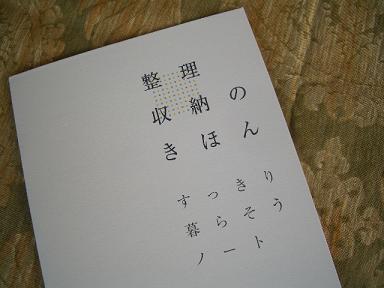 整理
収納の
きほん
すっきり
暮らそう
ノート